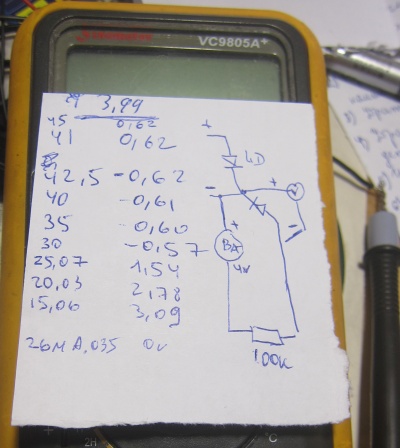 VC9805A+
3,99
45 0,62
41 0,62
42,5 -0,62
40 -0,61
35 -0,60
30 -0,57
25,07 1,54
20,03 2,178
15,06 3,09
26MA,035 0v
+
4D
+
V
-
+
BA
4v
100K
2H